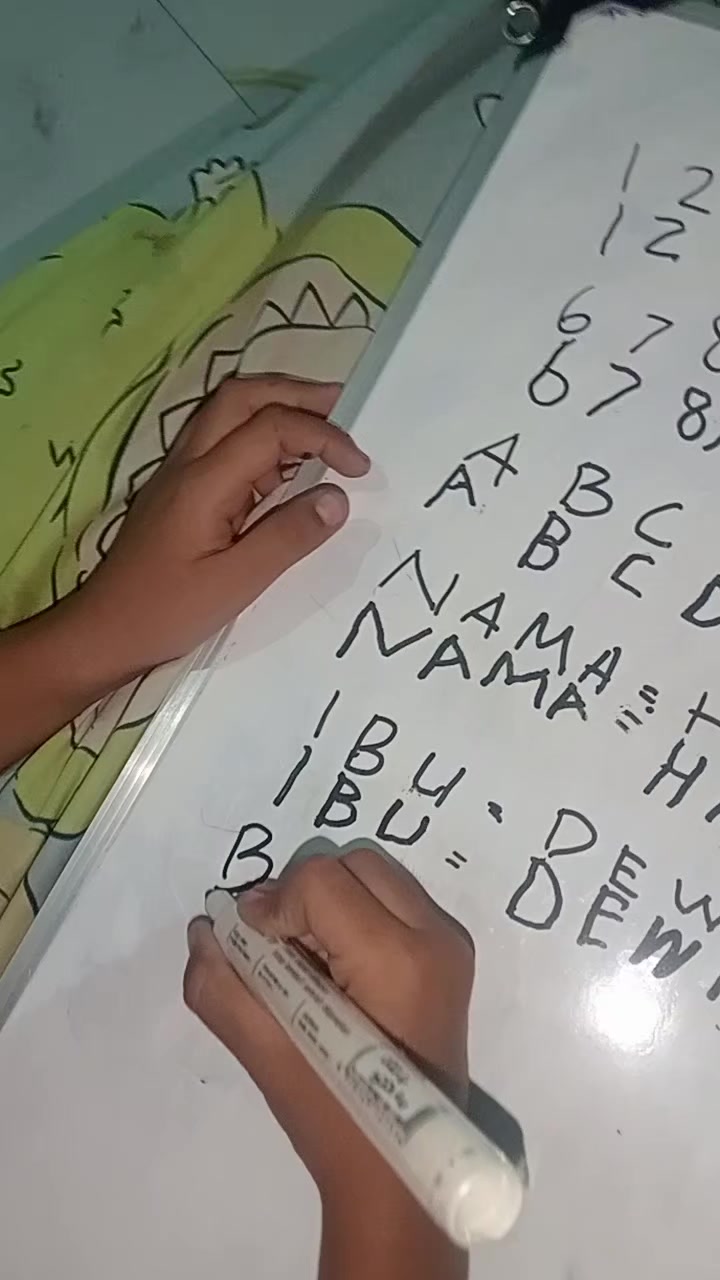 1 2
1 2
6 7 8
6 7 8
A B C
A B C D
NAMA = H
NAMA = H
IBU = DEW
IBU = DEWI
B